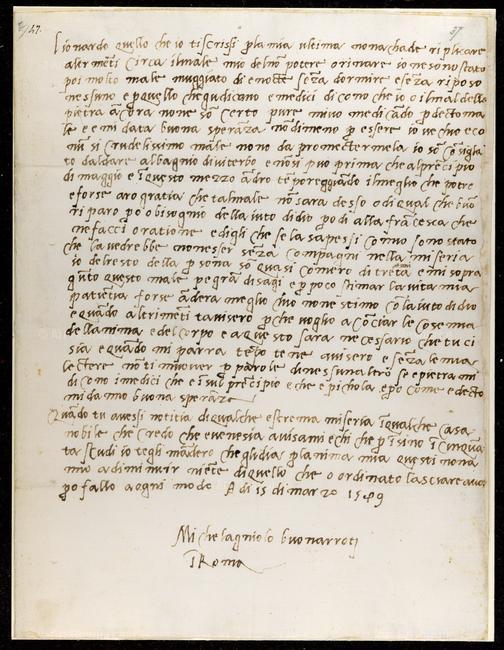 Lionardo quello che io ti scrissi p la mia ultima non achade ri plicare
altrimēti circa il male mio del nō potere orinare io ne sono stato
poi molto male muggiato dì e nocte sēza dormire e sēza riposo
nessuno e p quello che gudicano e medici dicono che io o il mal della
pietra ācora none sō certo pure mi vo medicādo p decto ma
le e emi data buona sperāza nō di meno p essere io vechio e co
nū sì crudelissimo male nono da promectermela io sō cōsiglia
to d'aldare al bagnio di viterbo e nō si puo prima che al prēcipio
di maggio e ī questo mezzo ādrò tēporeggiādo il meglio che potrò
e forse arò gratia che tal male nō sara desso o di qual che buō
riparo po o bisognio della iuto di dio po di alla frācesca che
ne facci oratione e digli che se la sapessi comio sono stato
che la vedrebbe non essei sēza compagni nella miseria
io del resto della p sona sō quasi comero di trēta āni mi sopra
gūto questo male pe grā disagi e p poco stimar la vita mia
patientia forse āderà meglio chio none stimo cō la iuto di dio
e quādo altrimēti ta viserò p che voglio acōciar le cose mia
dellanima e del corpo e a questo sara necessario che tu ci
sia e quādo mi parrà tēpo te ne aviserò e sēza le mia
lectere nō ti muover p parole di nessunaltro se e pietra mi
dicono i medici che e ī sul prēcipio e che e pichola e po come e decto
mi dāno buona sperāza
Quādo tu avessi notitia di qualche estrema miseria ī qualche casa
nobile che credo che e ve ne sia avisami e chi che p ī sino ī cinquā
ta scudi io te gli māderò che gli dia p lanima mia questi nonā
nio a diminuir niēte di quello che o ordinato lasciare a voi
po fallo a ogni modo A dì 15 di marzo 1549
Michelagniolo buonarroti
ī Roma